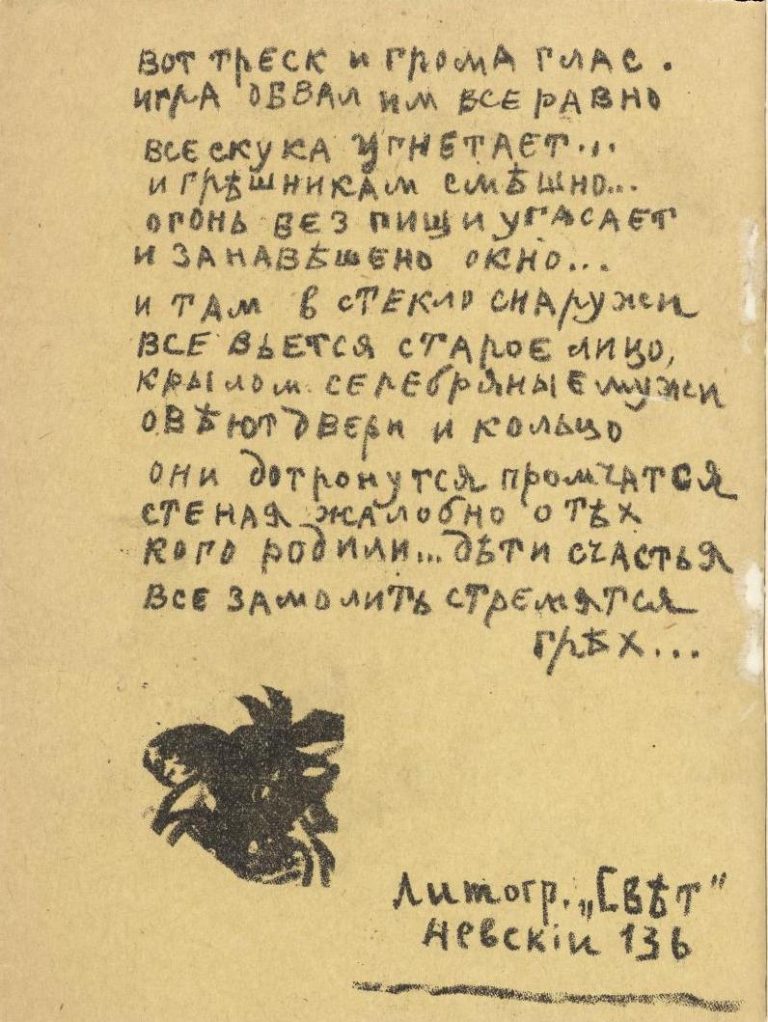 вот треск и грома глас.
игра обвал им все равно
все скука угнетает...
и грѣшникам смѣшно...
огонь без пищи угасает
и занавѣшено окно...
и там в стекло снаружи
все вьется старое лицо,
крылом серебряные мужи
овѣют двери и кольцо
они дотронутся промчатся
стеная жалобно о тѣх
кого родили... дѣти счастья
все замолить стремятся
грѣх...
Литогр. „Свѣт"
невскіи 136